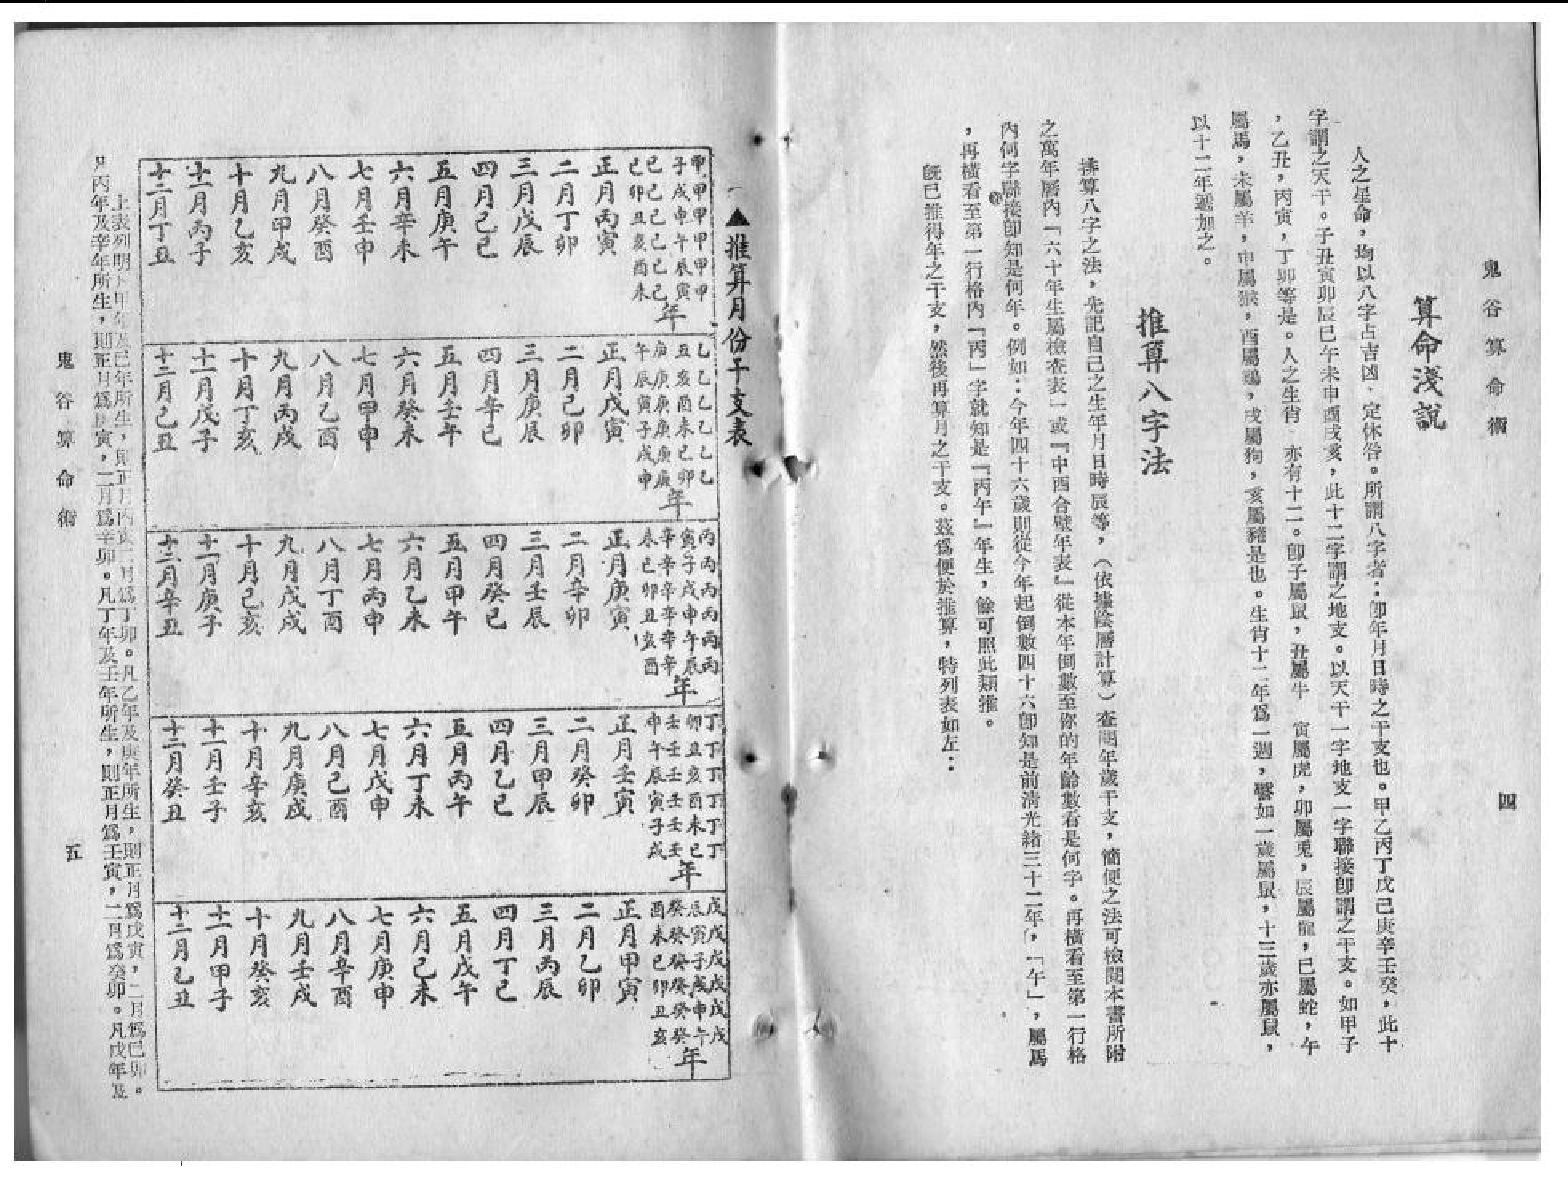 鬼谷算命術
四
算命淺說
人之星命，均以八字占吉凶，定休咎。所謂八字者，卽年月日時之干支也。甲乙丙丁戊己庚辛壬癸，此十
字謂之天干。子丑寅卯辰巳午未申酉戌亥，此十二字謂之地支。以天干一字地支一字聯接卽謂之干支。如甲子
，乙丑，丙寅，丁卯等是。人之生肖 亦有十二。卽子屬鼠，丑屬牛 寅屬虎，卯屬兎，辰屬龍，巳屬蛇，午
屬馬，未屬羊，申屬猴，酉屬鷄，戌屬狗，亥屬豬是也。生肖十二年爲一週，譬如一歲屬鼠，十三歲亦屬鼠，
以十二年遞加之。
推算八字法
推算八字之法，先記自己之生年月日時辰等，（依據陰曆計算）查明年歲干支，簡便之法可檢閱本書所附
之萬年曆內「六十年生屬檢查表」或『中西合璧年表』從本年倒數至你的年齡數看是何字。再橫看至第一行格
內何字聯接卽知是何年。例如：今年四十六歲則從今年起倒數四十六卽知是前淸光緒三十二年，「午」，屬馬
，再橫看至第一行格內「丙」字就知是『丙午』年生，餘可照此類推。
旣已推得年之干支，然後再算月之干支。茲爲便於推算，特列表如左：
▲推算月份干支表
甲甲甲甲甲甲
子戌申午辰寅
己己己己己己
巳卯丑亥酉未
年
正月丙寅
二月丁卯
三月戊辰
四月己巳
五月庚午
六月辛未
七月壬申
八月癸酉
九月甲戌
十月乙亥
十一月丙子
十二月丁丑
乙乙乙乙乙乙
丑亥酉未巳卯
庚庚庚庚庚庚
午辰寅子戌申
年
正月戊寅
二月己卯
三月庚辰
四月辛巳
五月壬午
六月癸未
七月甲申
八月乙酉
九月丙戌
十月丁亥
十一月戊子
十二月己丑
丙丙丙丙丙丙
寅子戌申午辰
辛辛辛辛辛辛
未巳卯丑亥酉
年
正月庚寅
二月辛卯
三月壬辰
四月癸巳
五月甲午
六月乙未
七月丙申
八月丁酉
九月戊戌
十月己亥
十一月庚子
十二月辛丑
丁丁丁丁丁丁
卯丑亥酉未巳
壬壬壬壬壬壬
申午辰寅子戌
年
正月壬寅
二月癸卯
三月甲辰
四月乙巳
五月丙午
六月丁未
七月戊申
八月己酉
九月庚戌
十月辛亥
十一月壬子
十二月癸丑
戊戊戊戊戊戊
辰寅子戌申午
癸癸癸癸癸癸
酉未巳卯丑亥
年
正月甲寅
二月乙卯
三月丙辰
四月丁巳
五月戊午
六月己未
七月庚申
八月辛酉
九月壬戌
十月癸亥
十一月甲子
十二月乙丑
上表列明凡甲年及己年所生，則正月丙寅二月爲丁卯。凡乙年及庚年所生，則正月爲戊寅，二月爲己卯。
凡丙年及辛年所生，則正月爲庚寅，二月爲辛卯。凡丁年及壬年所生，則正月爲壬寅，二月爲癸卯。凡戊年及
鬼谷算命術
五